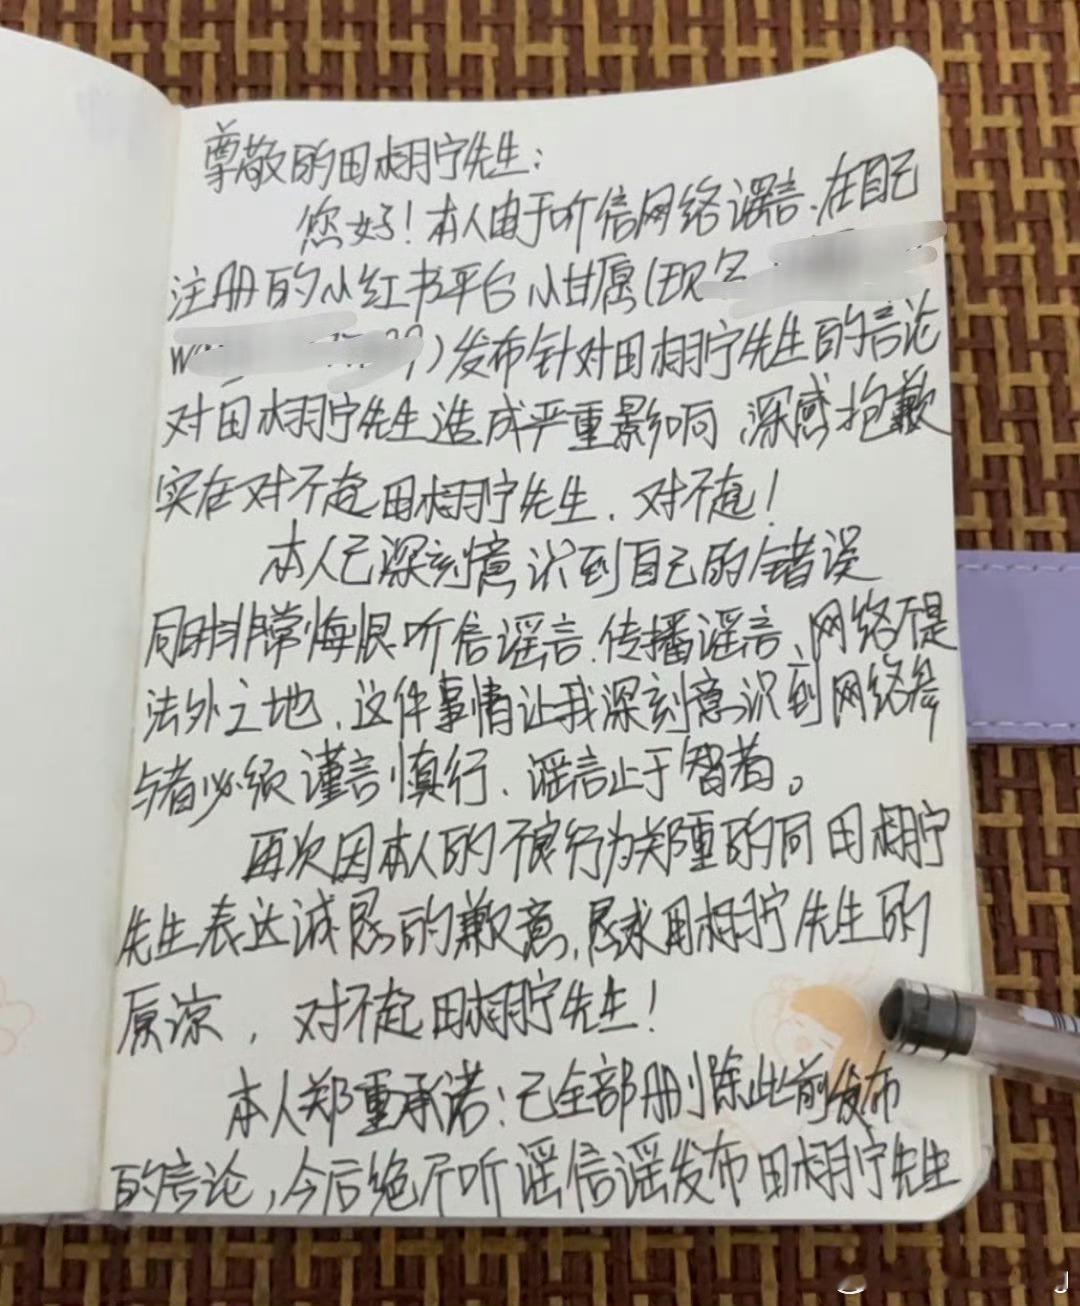 尊敬的田栩宁先生：
您好！本人由于听信网络谣言、在自己
注册的小红书平台小甘属(现名
w）发布针对田栩宁先生的言论
对田栩宁先生造成严重影响、深感抱歉
实在对不起田栩宁先生、对不起！
本人已深刻意识到自己的错误
同时非常悔恨听信谣言、传播谣言、网络不是
法外之地、这件事情让我深刻意识到网络参
与者必须谨言慎行、谣言止于智者。
再次因本人的不良行为郑重的向田栩宁
先生表达诚恳的歉意，恳求田栩宁先生的
原谅，对不起田栩宁先生！
本人郑重承诺：已全部删除此前发布
的言论，今后绝不听谣信谣发布田栩宁先生